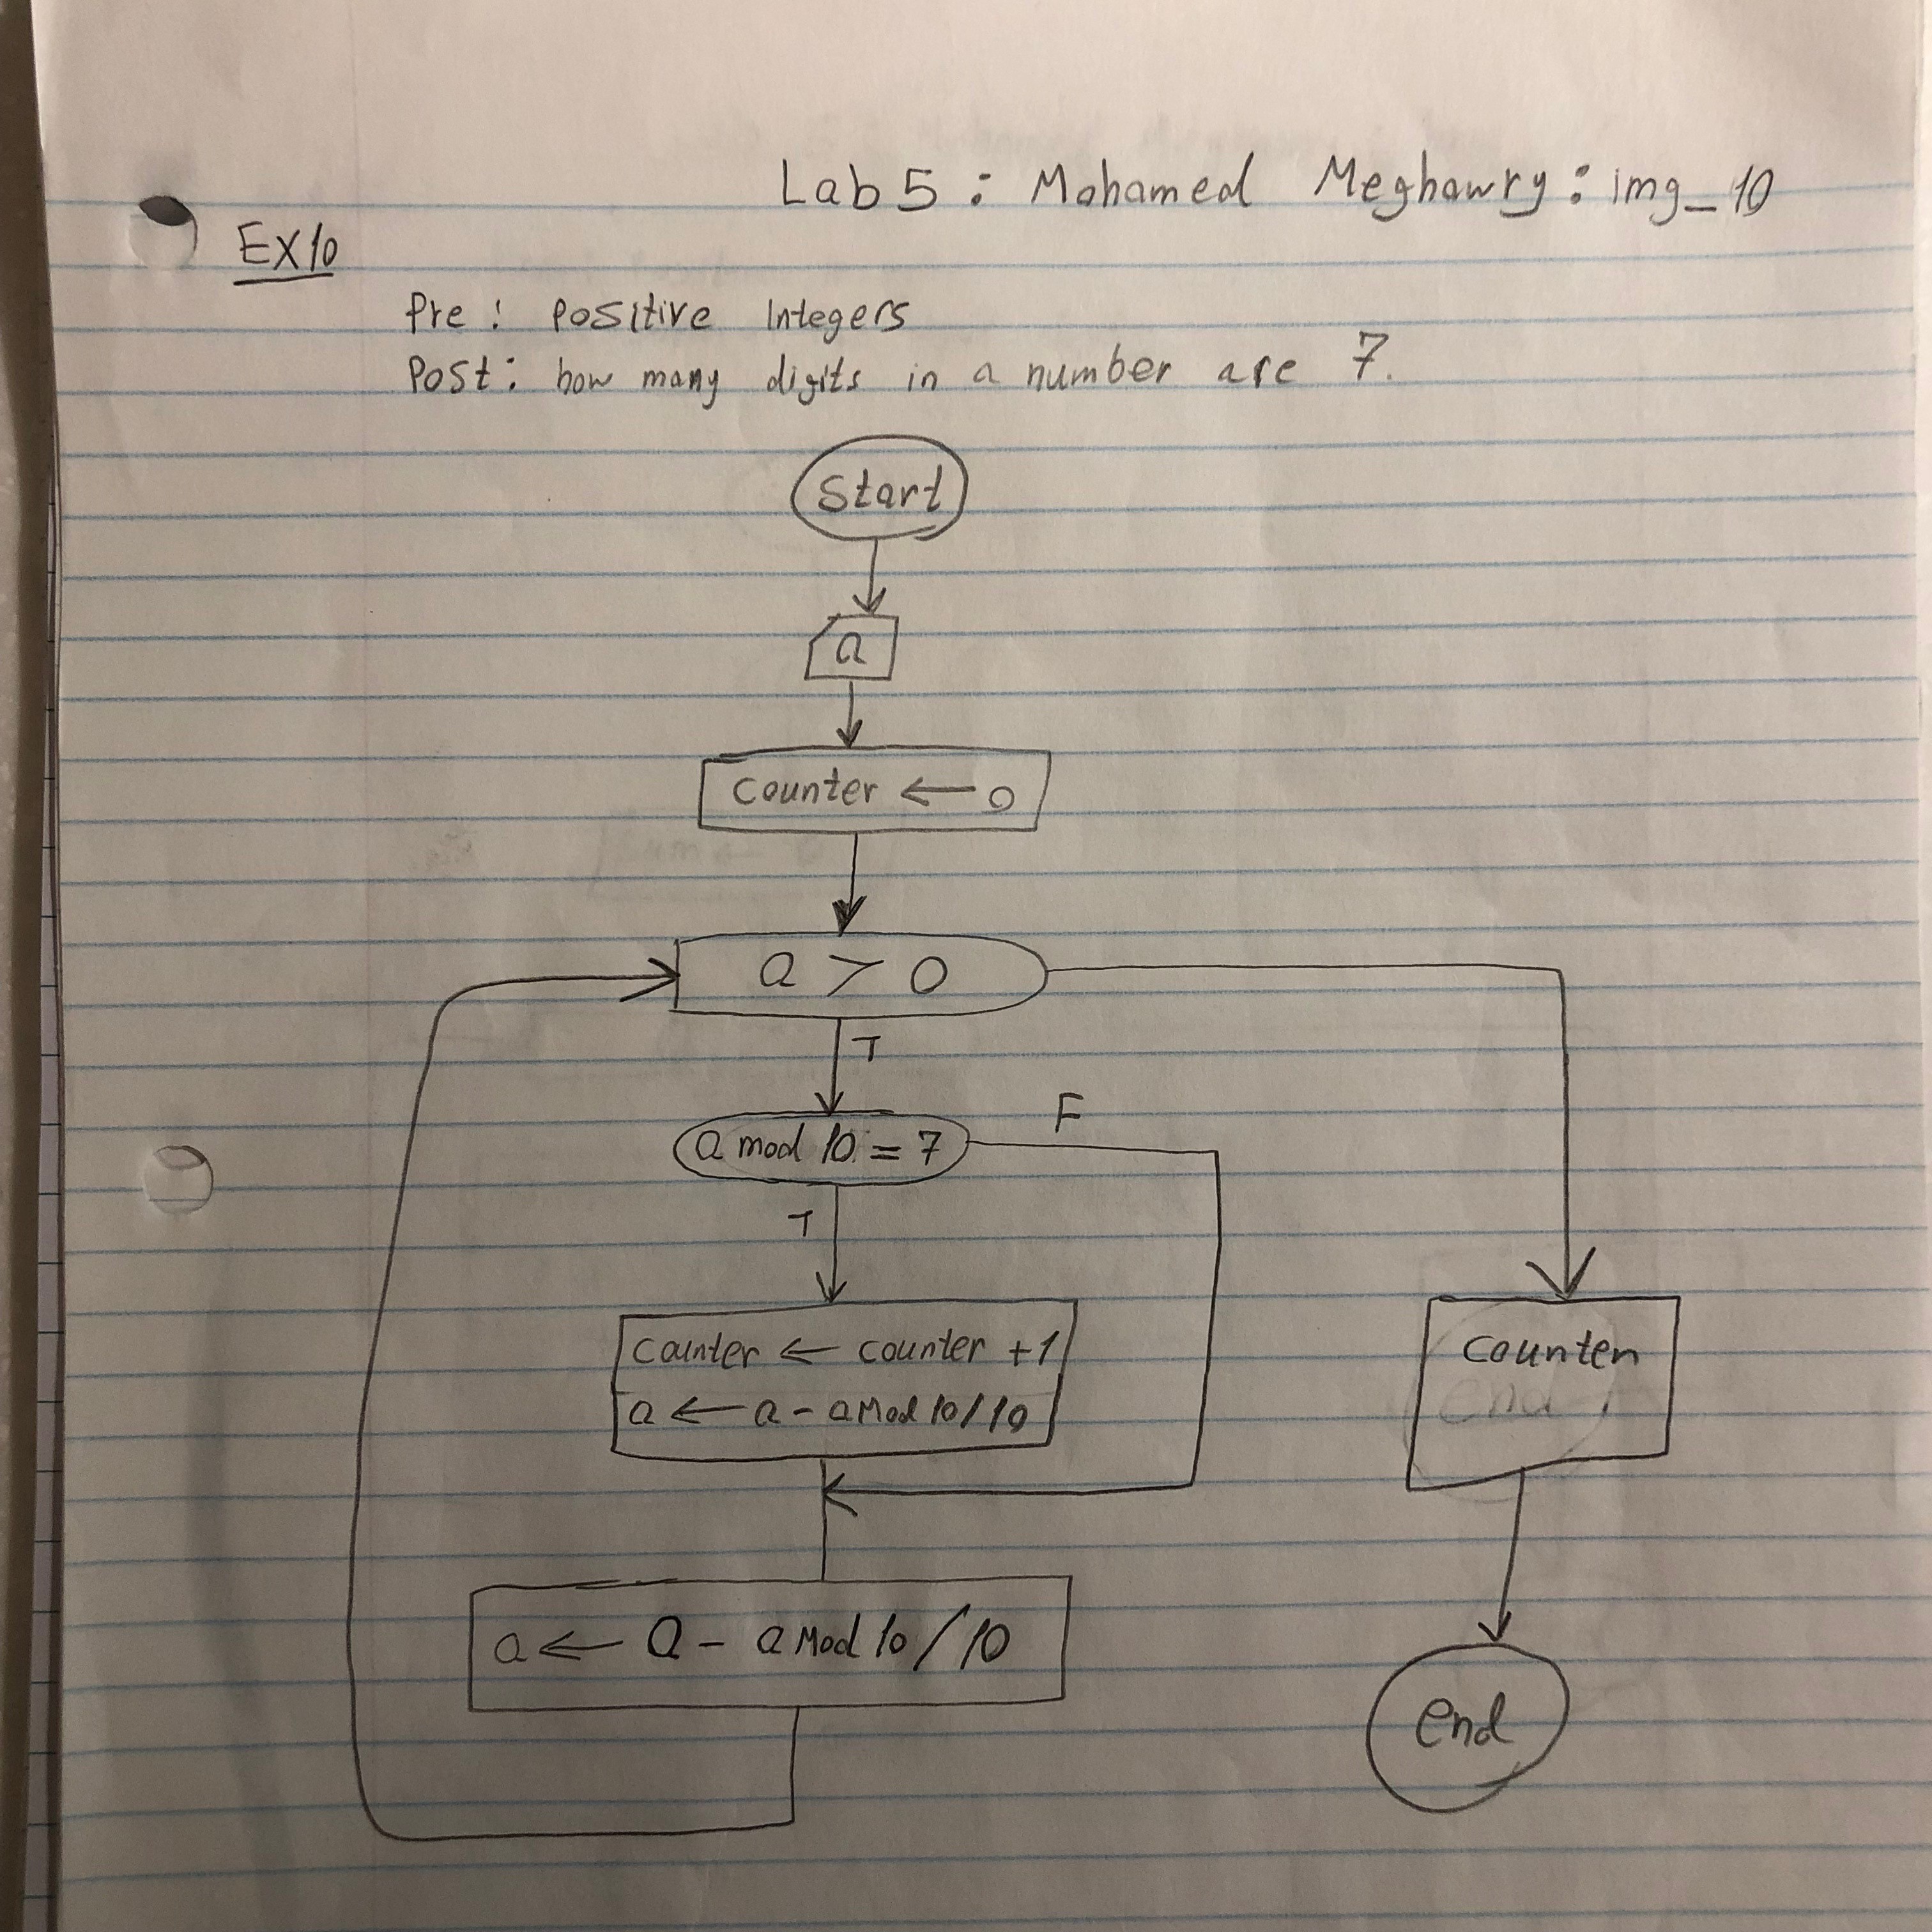 Lab 5 : Mohamed Meghawry : img_10
EX10
Pre : Positive Integers
Post : how many digits in a number are 7.
Start
a
counter ← 0
a > 0
T
a mod 10 = 7
F
T
counter ← counter +1
a ← a - a Mod 10/10
counter
end
a ← a - a Mod 10/10
end